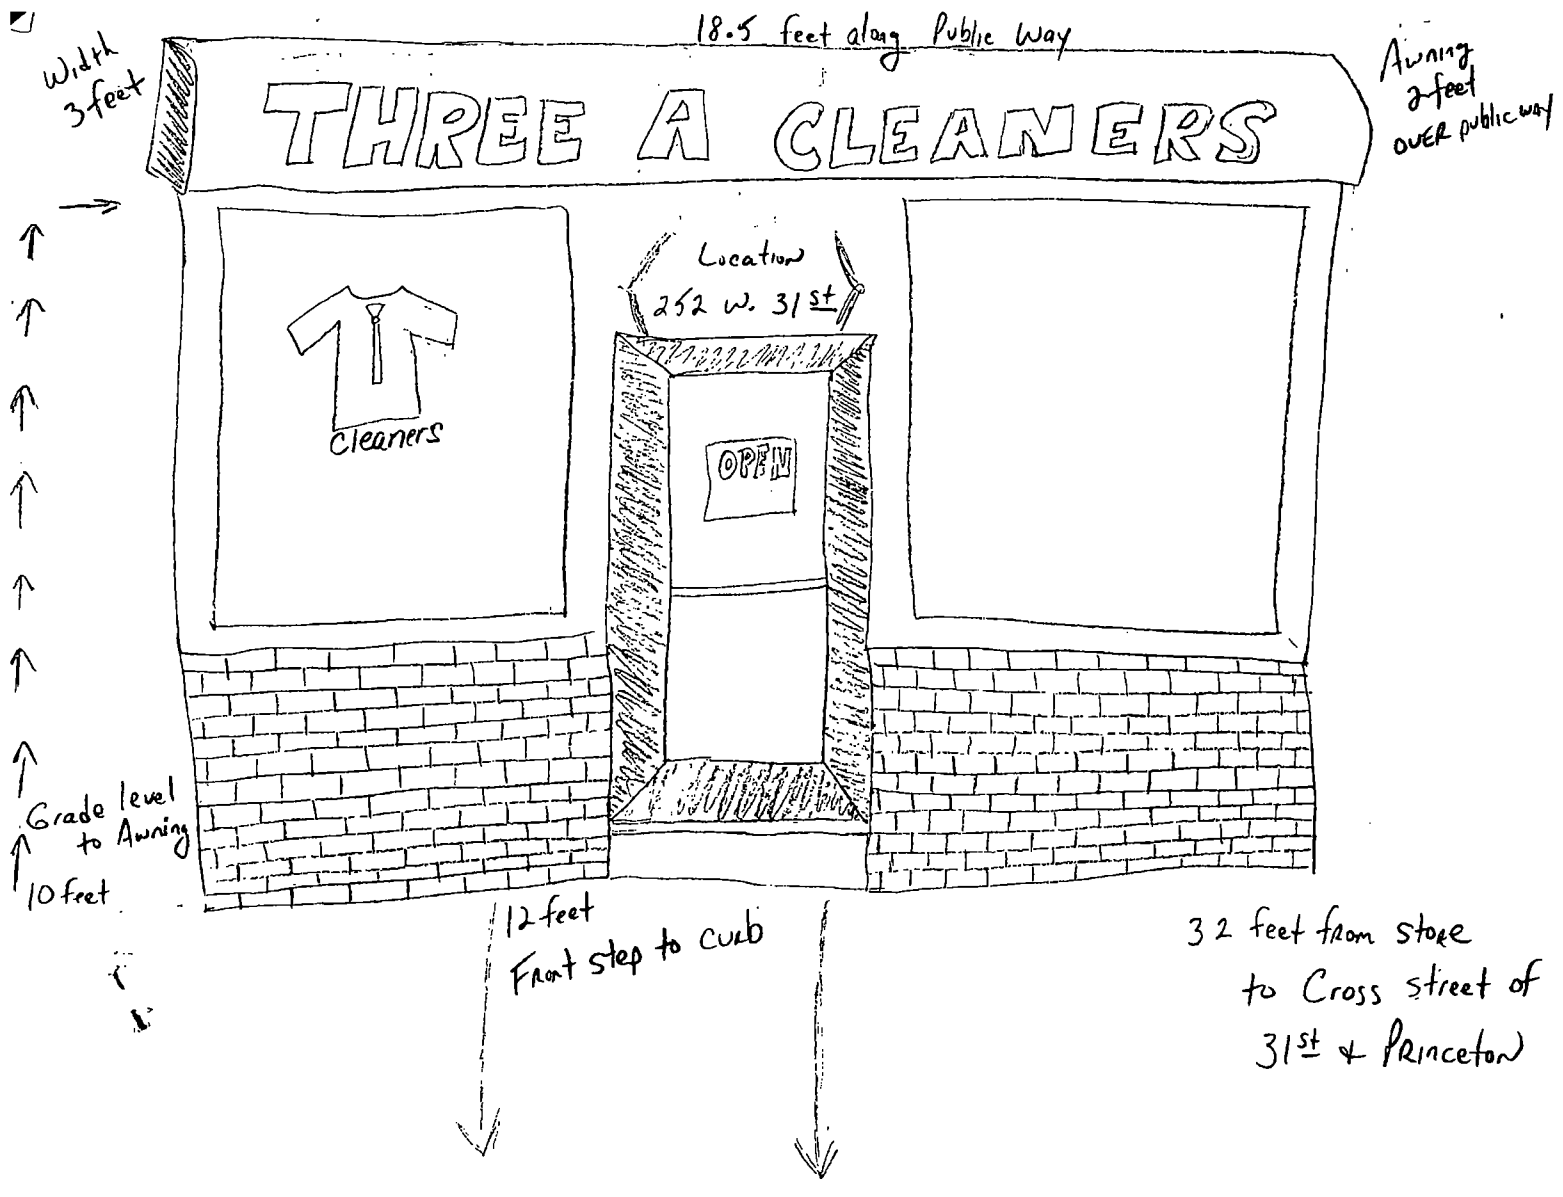 18.5 feet along Public Way
Width
3 feet
Awning
2 feet
OVER public way
THREE A CLEANERS
Location
252 W. 31st
cleaners
OPEN
Grade level
to Awning
10 feet
12 feet
Front step to curb
32 feet from store
to Cross street of
31st + Princeton